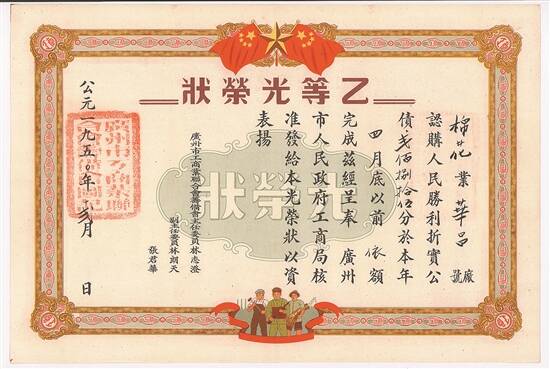 乙等光榮狀
棉花業華昌廠號
認購人民勝利折實公
債貳佰捌拾伍分於本年
四月底以前依額
完成茲經呈奉廣州
市人民政府工商局核
准發給本光榮狀以資
表揚
廣州市工商業聯合會籌備會主任委員林志澄
副主任委員林朗天
張君華
公元一九五〇年 月 日
光榮狀